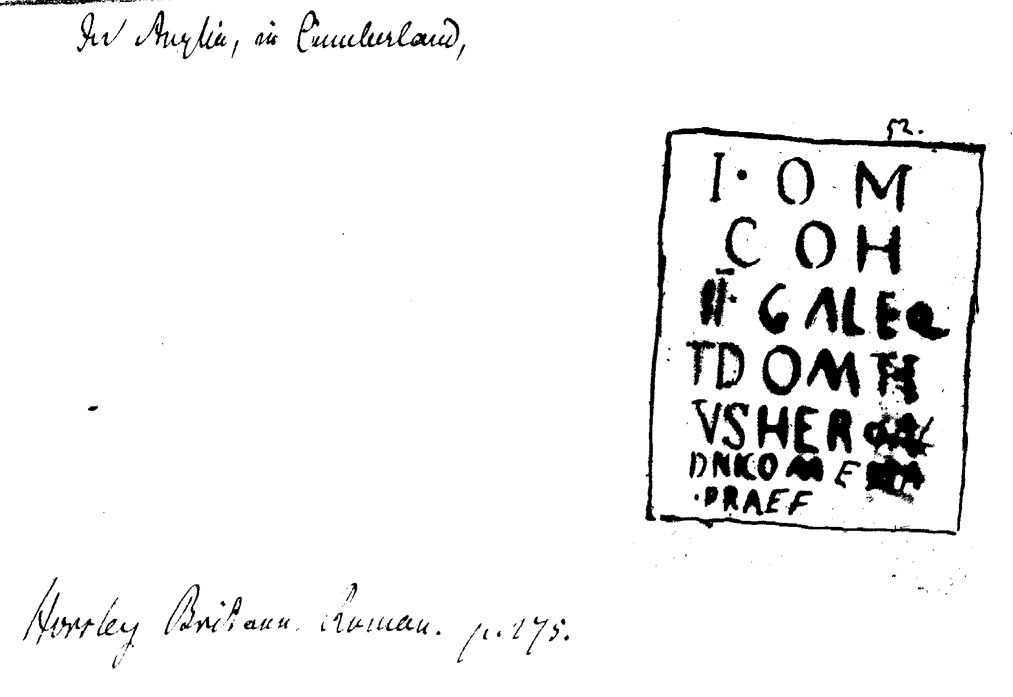 In Anglia, in Cumberland,
52.
I· O M
C O H
II· GALEQ
TDOMH
VSHERO
DNICOME
·PRAEF
Horsley Britann. Roman. p. 275.